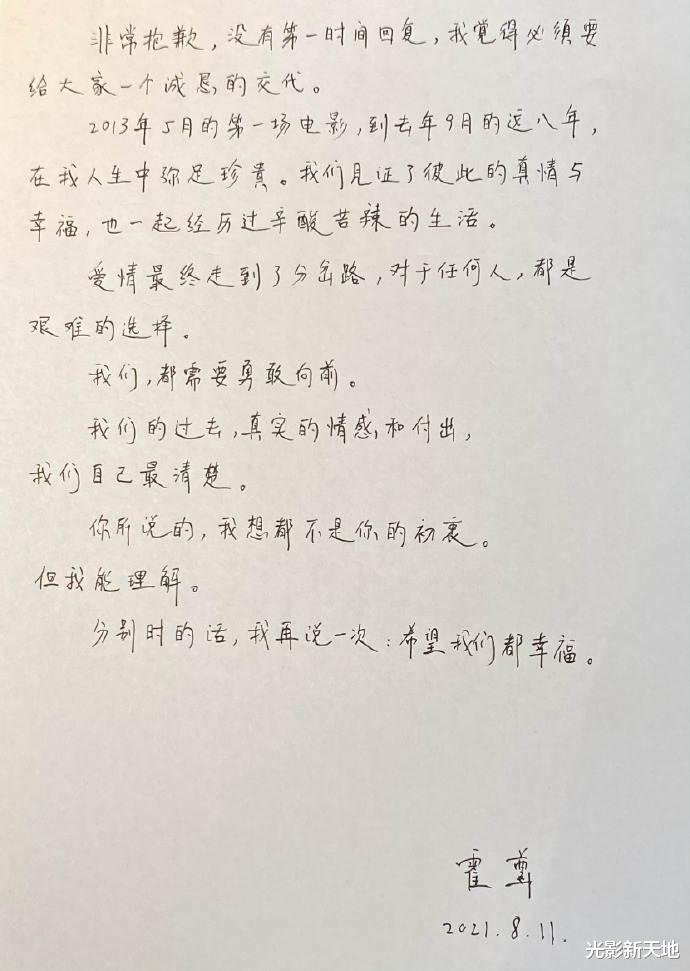 非常抱歉，没有第一时间回复，我觉得必须要
给大家一个诚恳的交代。
2013年5月的第一场电影，到去年9月的近八年，
在我人生中弥足珍贵。我们见证了彼此的真情与
幸福，也一起经历过辛酸苦辣的生活。
爱情最终走到了分岔路，对于任何人，都是
艰难的选择。
我们，都需要勇敢向前。
我们的过去，真实的情感和付出，
我们自己最清楚。
你所说的，我想都不是你的初衷。
但我能理解。
分别时的话，我再说一次：希望我们都幸福。
霍尊
2021.8.11.
光影新天地